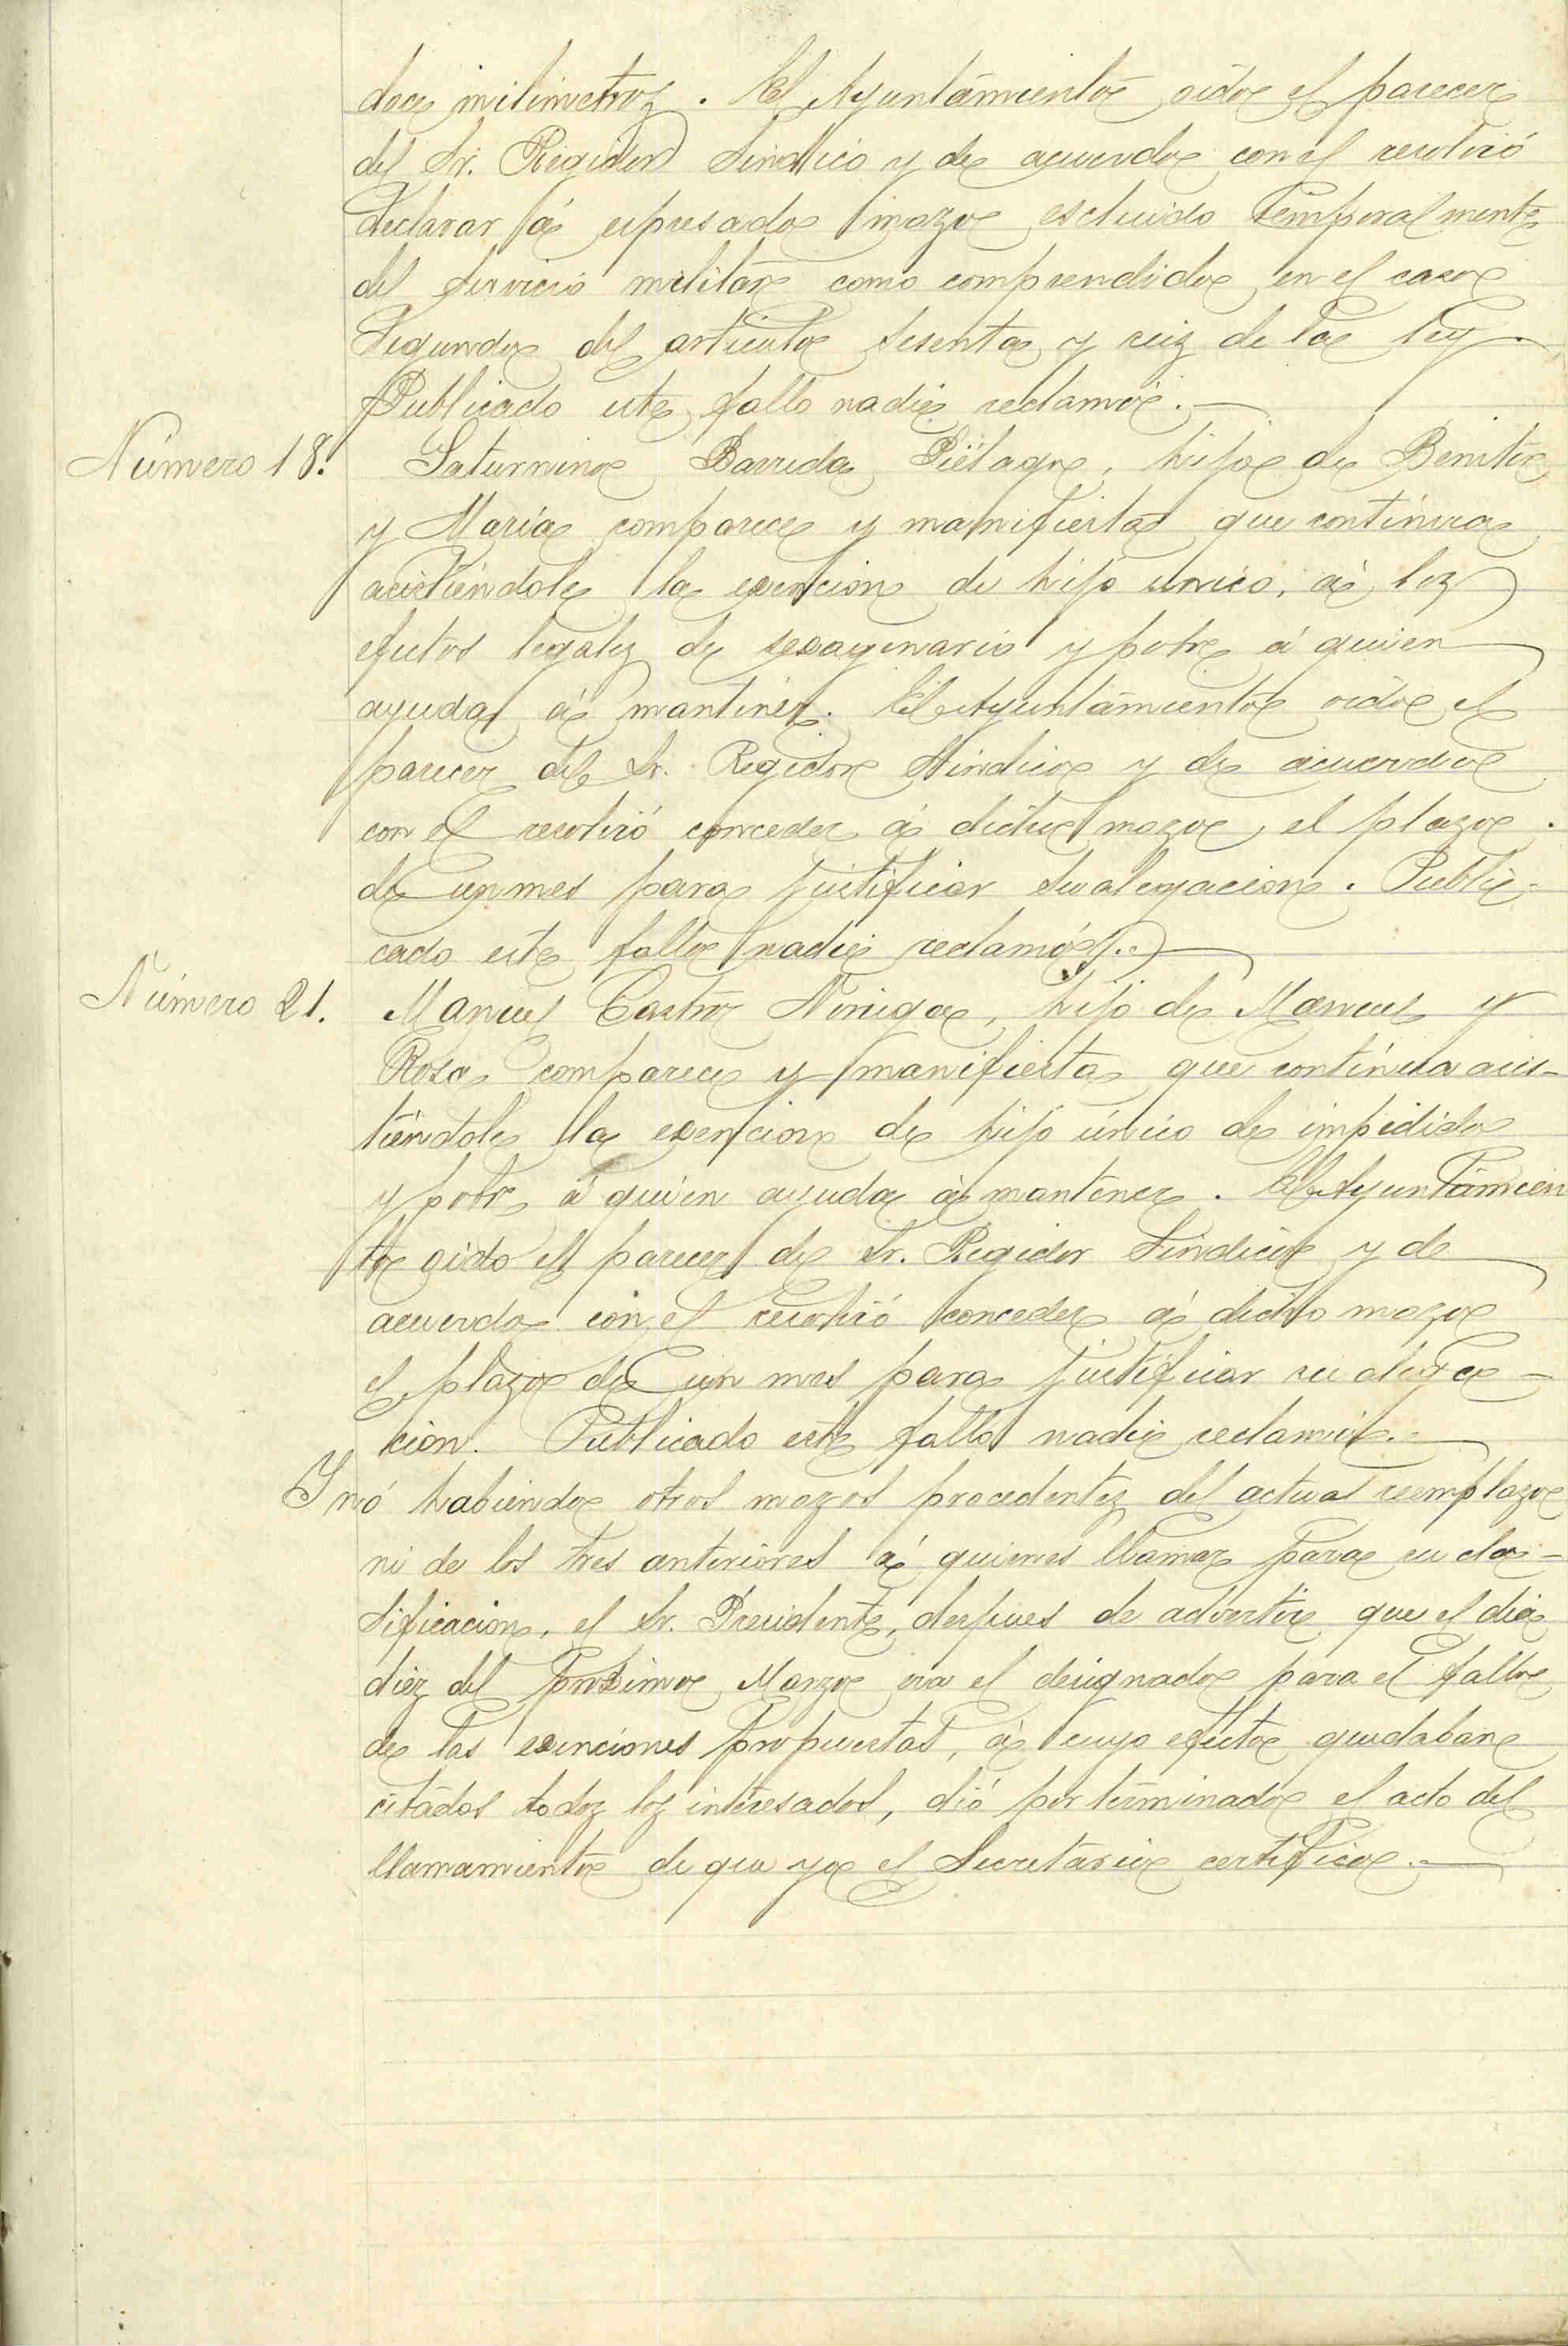 doce milimetros. El Ayuntamiento oido el parecer
del Sr. Regidor Sindico y de acuerdo con el resolvió
declarar á espresado mozo escluido temporalmente
del servicio militar como comprendido en el caso
segundo del articulo sesenta y seiz de la ley.
Publicado este fallo nadie reclamó.
Número 18. Saturnino Barreda Piélago, hijo de Benito
y Maria comparece y manifiesta que continua
asistiéndole la exencion de hijo unico, á los
efectos legales de sexagenario y pobre á quien
ayuda á mantener. El Ayuntamiento oido el
parecer del Sr. Regidor Sindico y de acuerdo
con el resolvió conceder á dicho mozo, el plazo
de un mes para justificar su alegacion. Publi-
cado este fallo nadie reclamó.
Número 21. Manuel Castro Noriega, hijo de Manuel y
Rosa comparece y manifiesta que continua asis-
tiéndole la exencion de hijo único de impedido
y pobre á quien ayuda á mantener. El Ayuntamien
to oido el parecer de Sr. Regidor Sindico y de
acuerdo con el resolvió conceder á dicho mozo
el plazo de un mes para justificar su alega-
cion. Publicado este fallo nadie reclamó.
Y nó habiendo otros mozos procedentes del actual reemplazo
ni de los tres anteriores á quienes llamar para su cla-
sificacion, el Sr. Presidente, despues de advertir que el dia
diez del proximo Marzo era el designado para el fallo
de las exenciones propuestas, á cuyo efecto quedaban
citados todos los interesados, dió por terminado el acto del
llamamiento de que yo el Secretario certifico.